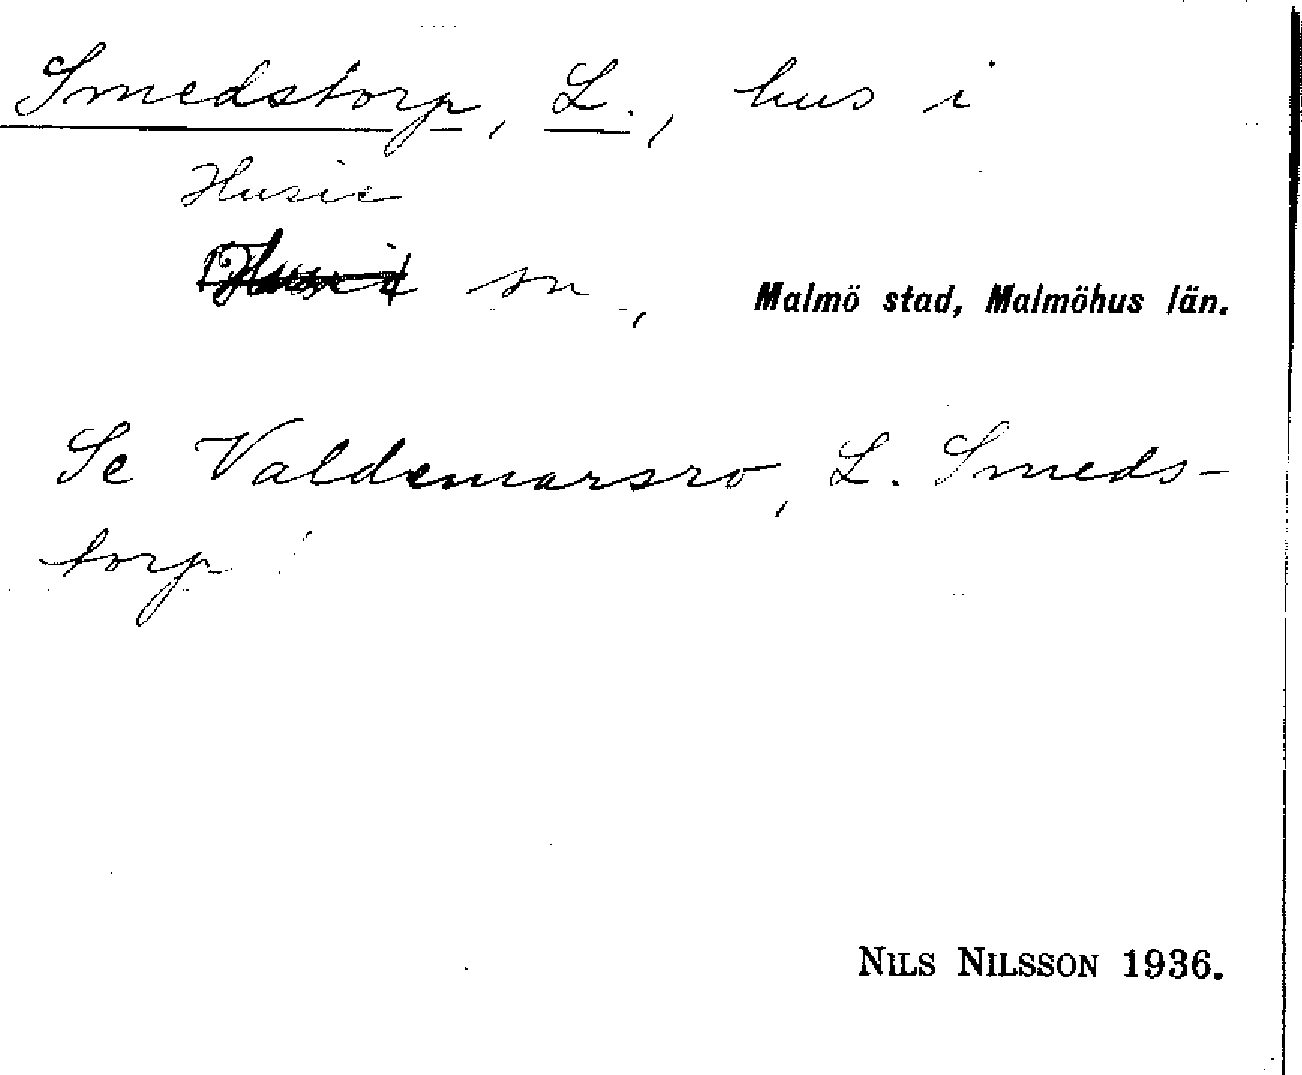 Smedstorp, L., hus i
Husie
sn, Malmö stad, Malmöhus län.
Se Valdemarsro, L. Smeds-
torp
NILS NILSSON 1936.